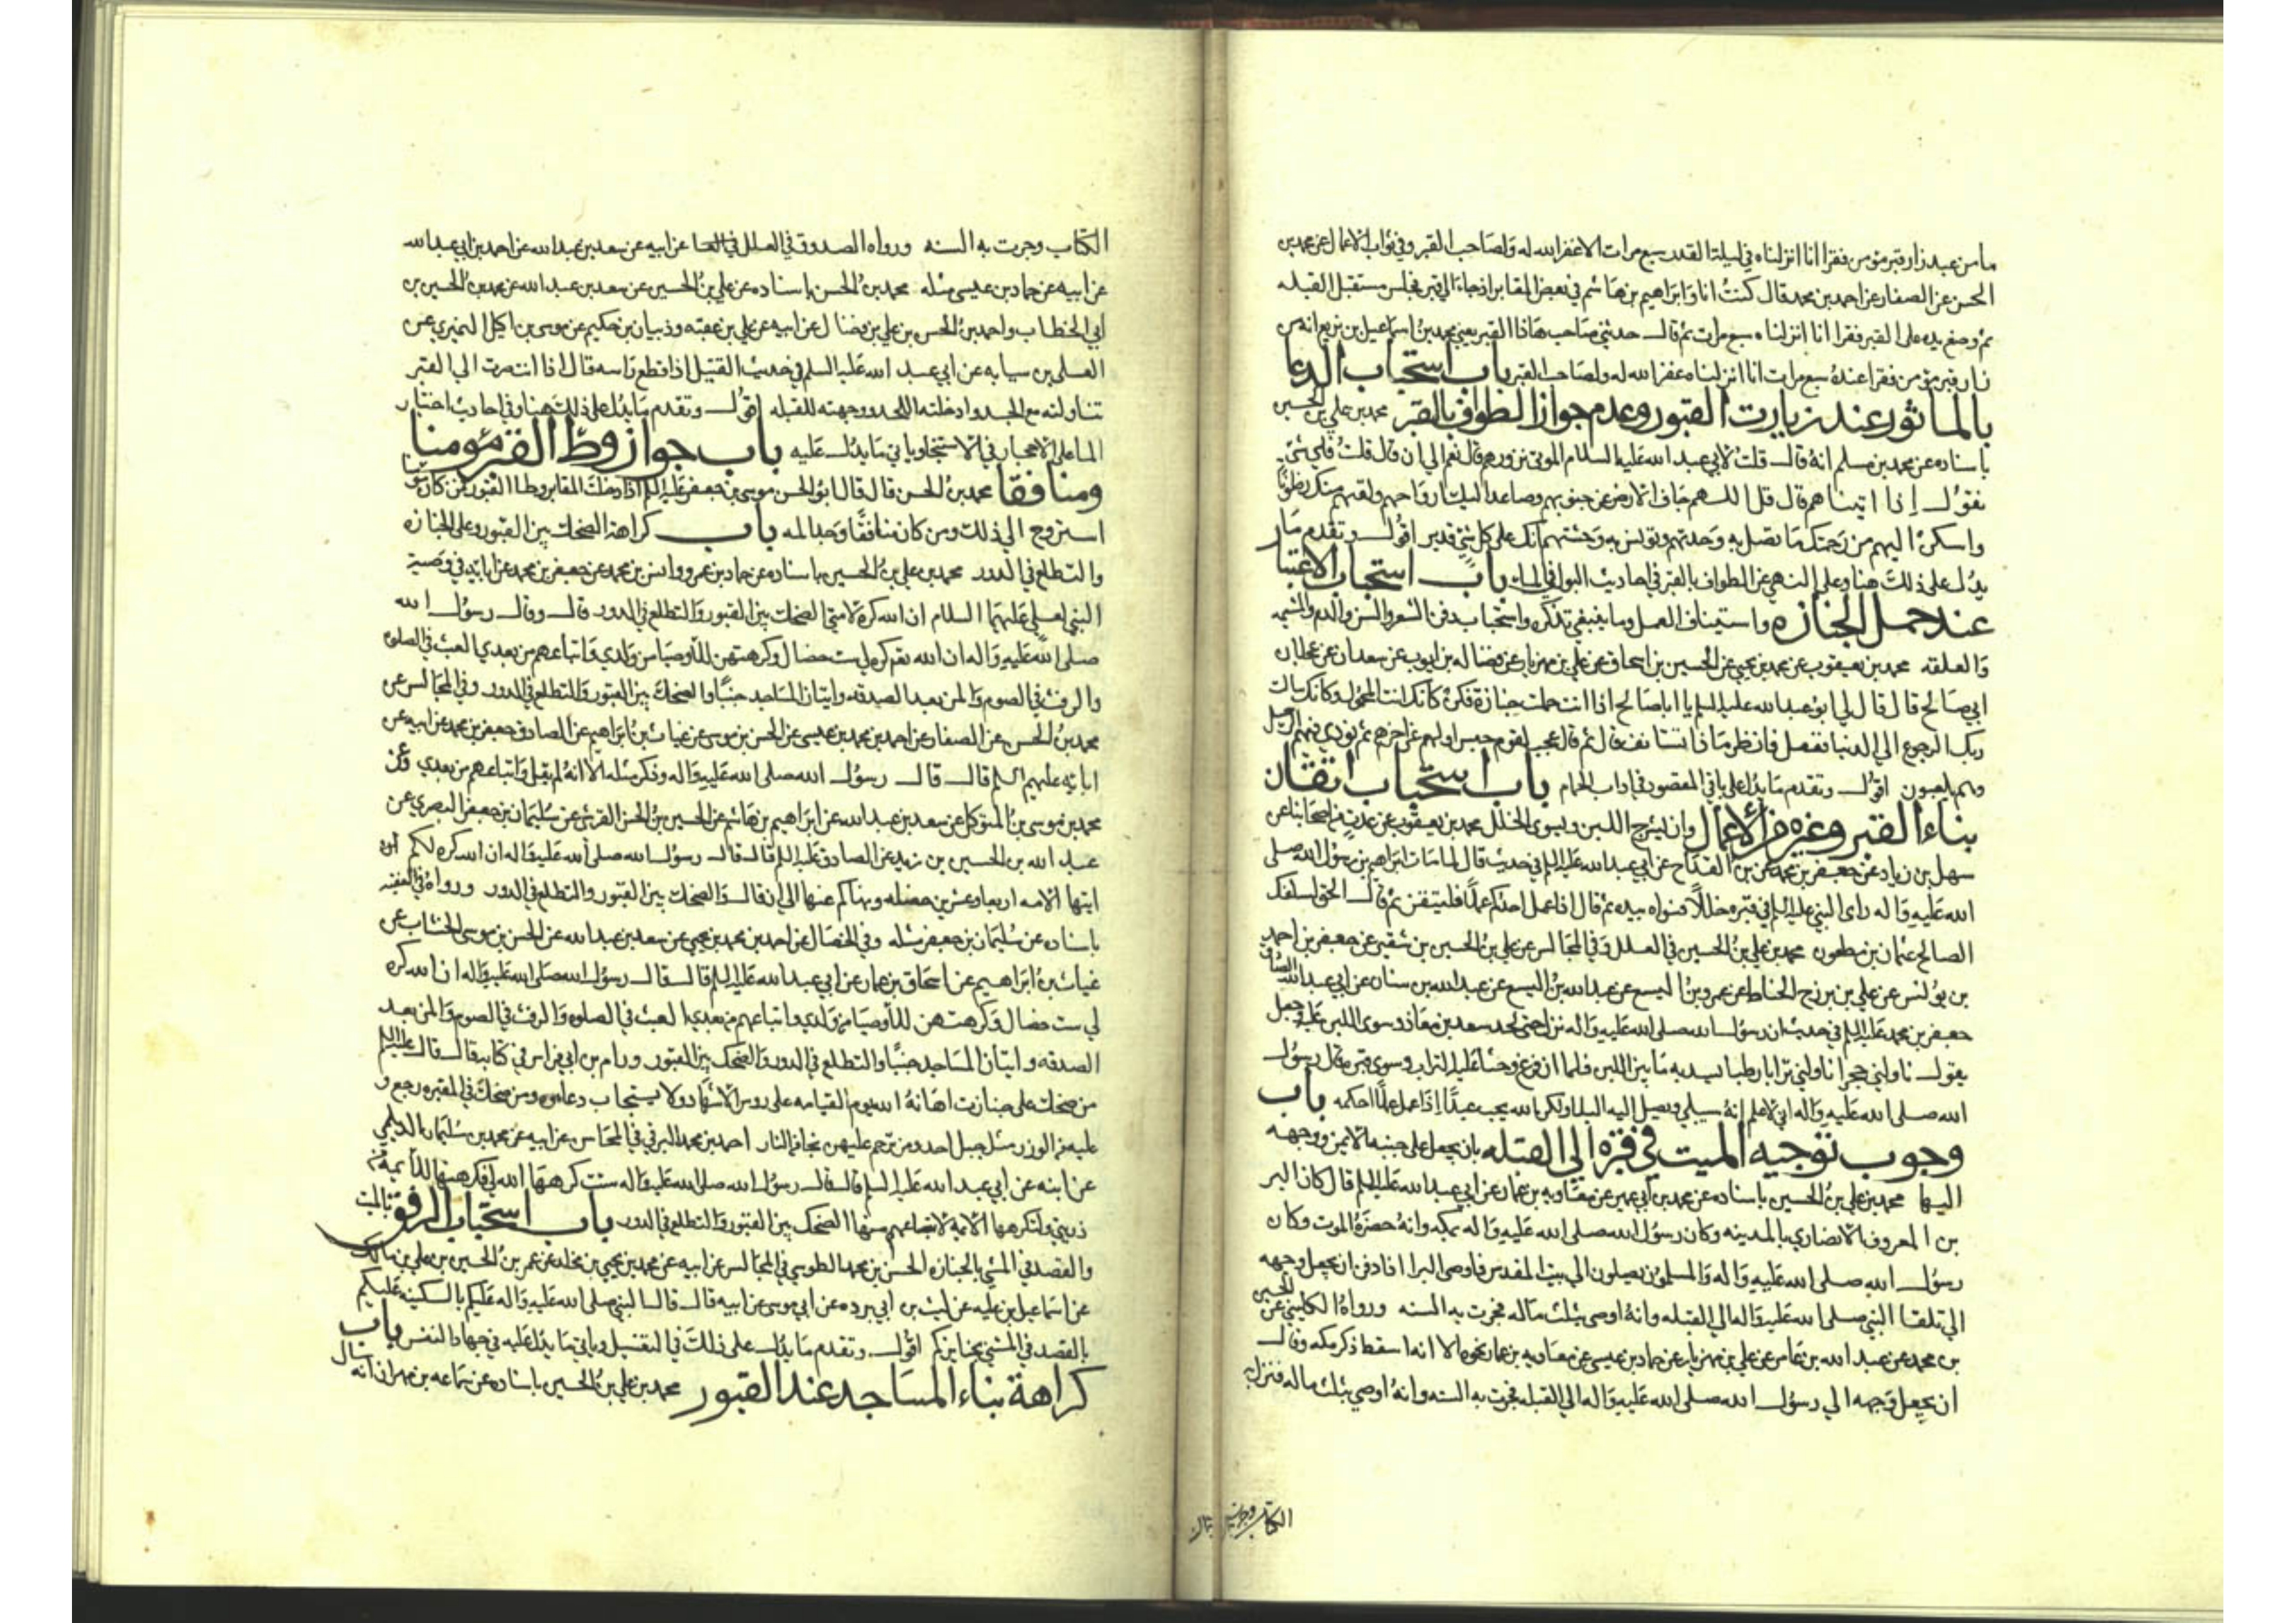 مامن عبد زار قبر مؤمن فقرا انا انزلناه في ليلة القدر سبع مرات الا غفر الله له ولصاحب القبر وفي ثواب الاعمال عن محمد بن
الحسن عن الصفار عن احمد بن محمد قال كنت انا وابراهيم بن هاشم في بعض المقابر اذ جاء الى قبر فجلس مستقبل القبله
ثم وضع يده على القبر فقرا انا انزلناه سبع مرات ثم قال حدثني صاحب هاذا القبر يعني محمد بن اسماعيل بن بزيع انه من
زار قبر مؤمن فقرا عنده سبع مرات انا انزلناه غفر الله له ولصاحب القبر باب استحباب الدعا
بالماثور عند زيارت القبور وعدم جواز الطواف بالقبر محمد بن علي بن الحسين
باسناده عن محمد بن مسلم انه قال قلت لابي عبد الله عليه السلام الموتى نزورهم قال نعم الي ان قال قلت فاي شي
نقول إذا اتيناهم قال قل اللهم جاف الارض عن جنوبهم وصاعد اليك ارواحهم ولقهم منك رضوانا
واسكن اليهم من رحمتك ما تصل به وحدتهم وتونس به وحشتهم انك على كل شي قدير اقول وتقدم ما
يدل على ذلك هنا وعلى النهي عن الطواف بالقبر في احاديث البول في الماء باب استحباب الاعتبار
عند حمل الجنازه واستيناف العمل وما ينبغي تذكره واستحباب دفن الشعر والسن والدم والمشيمه
والعلقه محمد بن يعقوب عن محمد بن يحيى عن الحسين بن اسحاق عن علي بن مهزيار عن فضاله بن ايوب عن سعدان عن عجلان
ابي صالح قال قال لي ابو عبد الله عليه السلم يا ابا صالح اذا انت حملت جنازة فكن كانك انت المحمول وكانك سالت
ربك الرجوع الي الدنيا ففعل فانظر ماذا تستانف قال ثم قال عجب لقوم حبس اولهم عن اخرهم ثم نودي فيهم الرحيل
وهم يلعبون اقول وتقدم ما يدل على باقي المقصود في اداب الحمام باب استحباب اتقان
بناء القبر وغيره من الاعمال وان يشرج اللبن ويسوى الخلل محمد بن يعقوب عن عدة من اصحابنا عن
سهل بن زياد عن جعفر بن محمد عن بن القداح عن ابي عبد الله عليه السلم في حديث قال لما مات ابراهيم بن رسول الله صلى
الله عليه واله راى النبي عليه السلم في قبره خللا فسواه بيده ثم قال اذا عمل احدكم عملا فليتقن ثم قال الحق بسلفك
الصالح عثمان بن مظعون محمد بن علي بن الحسين في العلل وفي المجالس عن علي بن الحسين بن شقير عن جعفر بن احمد
بن يونس عن علي بن بزرج الحناط عن عمرو بن اليسع عن عبد الله بن اليسع عن عبد الله بن سنان عن ابي عبد الله الصادق
جعفر بن محمد عليه السلم في حديث ان رسول الله صلى الله عليه واله نزل حتى لحد سعد بن معاذ وسوى اللبن عليه وجعل
يقول ناولني حجرا ناولني ترابا رطبا يسد به ما بين اللبن فلما ان فرغ وحثا عليه التراب وسوى قبره قال رسول
الله صلى الله عليه واله اني لاعلم انه سيبلى ويصل اليه البلاء ولكن الله يحب عبدا إذا عمل عملا احكمه باب
وجوب توجيه الميت في قبره الى القبله بان يجعل على جنبه الايمن ووجهه
اليها محمد بن علي بن الحسين باسناده عن محمد بن ابي عمير عن معاويه بن عمار عن ابي عبد الله عليه السلم قال كان البراء
بن المعرور الانصاري بالمدينه وكان رسول الله صلى الله عليه واله بمكه وانه حضره الموت وكان
رسول الله صلى الله عليه واله والمسلمون يصلون الي بيت المقدس فاوصى البرا اذا دفن ان يجعل وجهه
الي تلقا النبي صلى الله عليه واله الى القبله وانه اوصى بثلث ماله فجرت به السنه ورواه الكليني عن الحسين
بن محمد عن عبد الله بن عامر عن علي بن مهزيار عن حماد بن عيسى عن معاويه بن عمار نحوه الا انه اسقط ذكر مكه وقال
ان يجعل وجهه الي رسول الله صلى الله عليه واله الي القبله فجرت به السنه وانه اوصي بثلث ماله فنزل به
الكتاب وجرت به
الكتاب وجرت به السنه ورواه الصدوق في العلل عن ابيه عن سعد بن عبد الله عن احمد بن ابي عبد الله
عن ابيه عن حماد بن عيسى مثله محمد بن الحسن باسناده عن علي بن الحسين عن سعد بن عبد الله عن محمد بن الحسين بن
ابي الخطاب واحمد بن الحسن بن علي بن فضال عن ابيه عن علي بن عقبه وذبيان بن حكيم عن موسى بن اكيل النميري عن
العلى بن سيابه عن ابي عبد الله عليه السلم في حديث القتيل اذا قطع راسه قال اذا انت صرت الي القبر
تناولته مع الجسد وادخلته اللحد ووجهته للقبله اقول وتقدم ما يدل على ذلك هنا وفي احاديث اختيار
الما على الاحجار في الاستنجا وياتي ما يدل عليه باب جواز وطئ القبر مؤمنا
ومنافقا محمد بن الحسن قال قال ابو الحسن موسى بن جعفر عليه السلم اذا دخلت المقابر وطا القبور فمن كان مؤمنا
استروح الي ذلك ومن كان منافقا وجد المه باب كراهة الضحك بين القبور وعلى الجنازه
والتطلع في الدور محمد بن علي بن الحسين باسناده عن حماد بن عمرو وانس بن محمد عن جعفر بن محمد عن ابايه في وصية
النبي لعلي عليهما السلام ان الله كره لامتي الضحك بين القبور والتطلع في الدور قال وقال رسول الله
صلى الله عليه واله ان الله كره لي ست خصال وكرهتهن للاوصيا من ولدي واتباعهم من بعدي العبث في الصلوه
والرفث في الصوم والمن بعد الصدقه واتيان المساجد جنبا والضحك بين القبور والتطلع في الدور وفي المجالس عن
محمد بن الحسن عن الصفار عن احمد بن محمد بن عيسى عن الحسن بن موسى عن غياث بن ابراهيم عن الصادق جعفر بن محمد عن ابيه عن
ابائه عليهم السلم قال قال رسول الله صلى الله عليه واله وذكر مثله الا انه لم يقل واتباعهم من بعدي وعن
محمد بن موسى بن المتوكل عن سعد بن عبد الله عن ابراهيم بن هاشم عن الحسين بن الحسن القرشي عن سليمان بن جعفر البصري عن
عبد الله بن الحسين بن زيد عن الصادق عليه السلم قال قال رسول الله صلى الله عليه واله ان الله كره لكم
ايتها الامه اربعا وعشرين خصله ونهاكم عنها الي ان قال والضحك بين القبور والتطلع في الدور ورواه في الفقيه
باسناده عن سليمان بن جعفر مثله وفي الخصال عن احمد بن محمد بن يحيى عن سعد بن عبد الله عن الحسن بن موسى الخشاب عن
غياث بن ابراهيم عن اسحاق بن عمار عن ابي عبد الله عليه السلم قال قال رسول الله صلى الله عليه واله ان الله كره
لي ست خصال وكرهتهن للاوصيا من ولدي واتباعهم من بعدي العبث في الصلوه والرفث في الصوم والمن بعد
الصدقه واتيان المساجد جنبا والتطلع في الدور والضحك بين القبور ورام بن ابي فراس في كتابه قال قال عليه السلم
من ضحك على جنازت اهانه الله يوم القيامه على روس الاشهاد ولا يستجاب دعاوه ومن ضحك في المقبره رجع و
عليه من الوزر مثل جبل احد ومن ترحم عليهم نجا من النار احمد بن محمد البرقي في المحاسن عن ابيه عن محمد بن سليمان الديلمي
عن ابيه عن ابي عبد الله عليه السلم قال قال رسول الله صلى الله عليه واله ست كرهها الله لي فكرهتها للائمه من
ذريتي ولتكرهها الائمه لاتباعهم منها الضحك بين القبور والتطلع في الدور باب استحباب الرفق بالميت
والقصد في المشي بالجنازه الحسن بن محمد الطوسي في المجالس عن ابيه عن محمد بن يحيى بن مخلد عن عمر بن الحسين بن علي بن مالك
عن اسماعيل بن عليه عن ليث بن ابي برده عن ابي موسى عن ابيه قال قال النبي صلى الله عليه واله عليكم بالسكينه عليكم
بالقصد في المشي بجنايزكم اقول وتقدم ما يدل على ذلك في التغسيل وياتي ما يدل عليه في جهاد النفس باب
كراهة بناء المساجد عند القبور محمد بن علي بن الحسين باسناده عن سماعه بن مهران انه سال